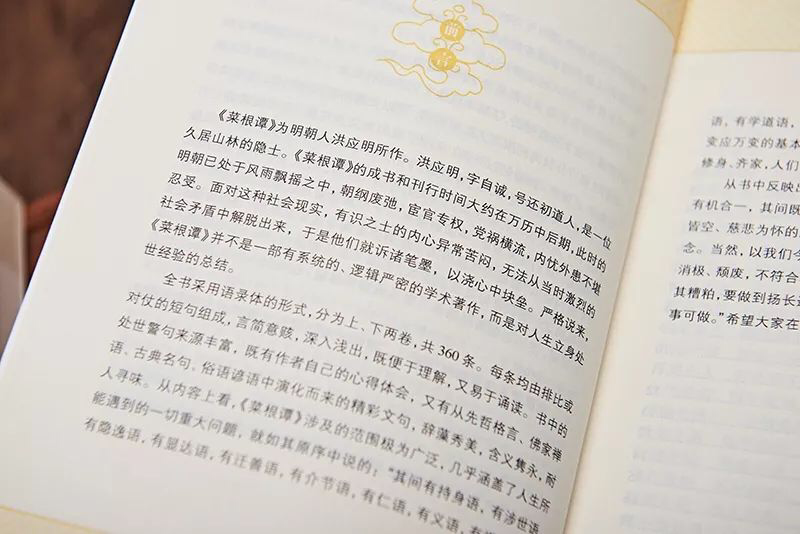 前言
《菜根谭》为明朝人洪应明所作。洪应明,字自诚,号还初道人,是一位
久居山林的隐士。《菜根谭》的成书和刊行时间大约在万历中后期,此时的
明朝已处于风雨飘摇之中,朝纲废弛,宦官专权,党祸横流,内忧外患不堪
忍受。面对这种社会现实,有识之士的内心异常苦闷,无法从当时激烈的
社会矛盾中解脱出来,于是他们就诉诸笔墨,以浇心中块垒。严格说来,
《菜根谭》并不是一部有系统的、逻辑严密的学术著作,而是对人生立身处
世经验的总结。
全书采用语录体的形式,分为上、下两卷,共360条。每条均由排比或
对仗的短句组成,言简意赅,深入浅出,既便于理解,又易于诵读。书中的
处世警句来源丰富,既有作者自己的心得体会,又有从先哲格言、佛家禅
语、古典名句、俗语谚语中演化而来的精彩文句,辞藻秀美,含义隽永,耐
人寻味。从内容上看,《菜根谭》涉及的范围极为广泛,几乎涵盖了人生所
能遇到的一切重大问题,就如其原序中说的:“其间有持身语,有涉世语
有隐逸语,有显达语,有迁善语,有介节语,有仁语,有义语,有
语、有学道语,
变应万变的基本
修身、齐家,人们
从书中反映
有机合一,其间既
皆空、慈悲为怀的
念。当然,以我们今
消极、颓废,不符合
其糟粕,要做到扬长
事可做。”希望大家在